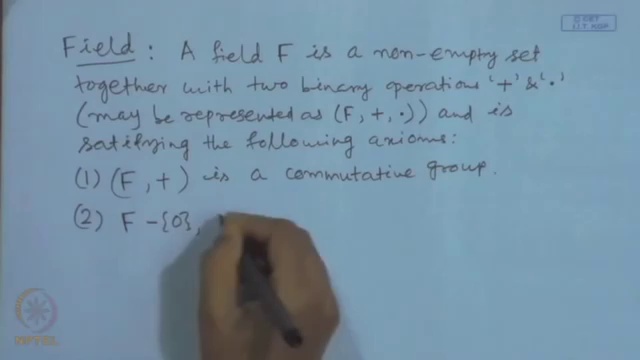 © CET
I.I.T. KGP
Field : A field F is a non-empty set
together with two binary operations '+' & '·'
(may be represented as (F, +, ·)) and is
satisfying the following axioms:
(1) (F, +) is a commutative group.
(2) F - {0},
NPTEL